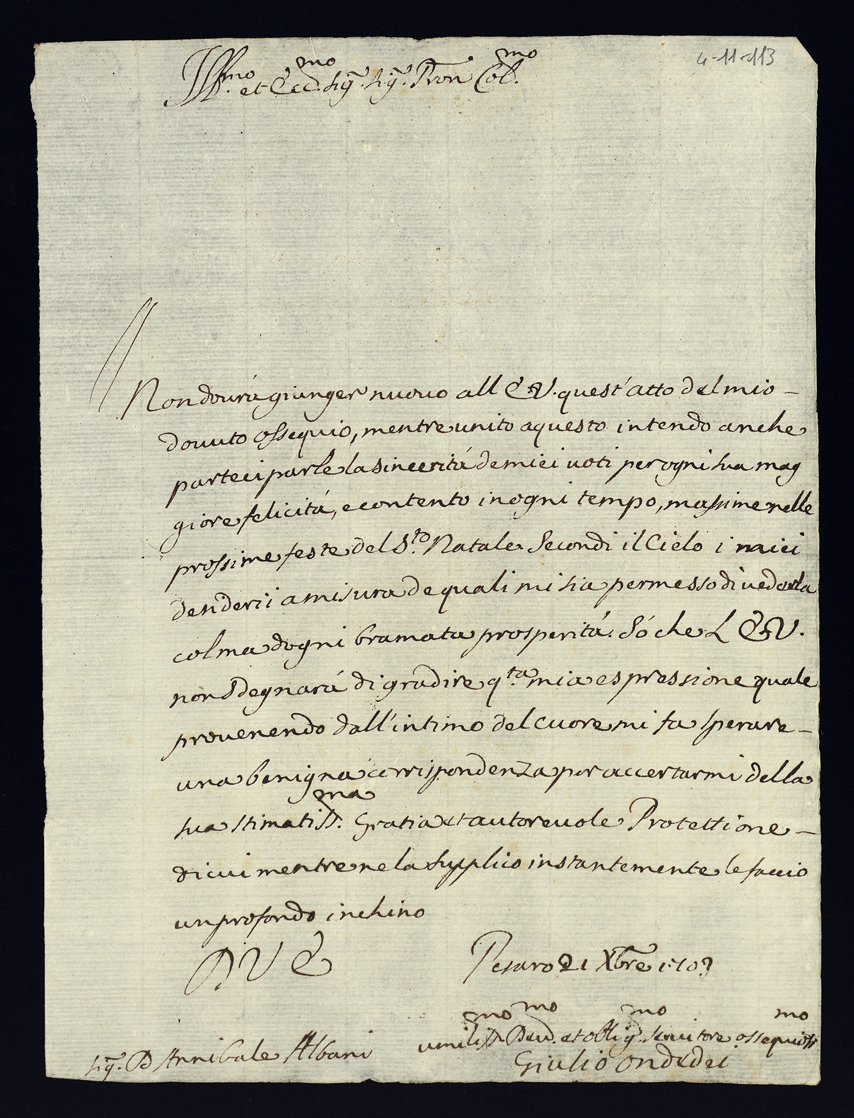 4-11-113
Ill.mo et Ecc.mo Sig. Sig. Pron Col.mo
Non dourà giunger nuouo all E.V. quest'atto del mio
douuto ossequio, mentre unito a questo intendo anche
parteciparle la sincerità de miei uoti per ogni sua mag
giore felicità, e contento in ogni tempo, massime nelle
prossime feste del S.to Natale Secondi il Cielo i miei
denderii a misura de quali mi sia permesso di vederla
colma d'ogni bramata prosperità. Só che L E.V.
non sdegnará di gradire q.ta mia espressione quale
prouenendo dall'intimo del cuore mi fa sperare
una benigna corrispondenza per accertarmi della
sua stimatiss.ma Gratia et autoreuole Protettione
di cui mentre ne la supplico instantemente le faccio
un profondo inchino
D V E
Pesaro 21 Xbre 1703
umiliss.mo Deu.mo et oblig.mo seruitore ossequiosiss.mo
Sig. D Annibale Albani
Giulio Ondedei